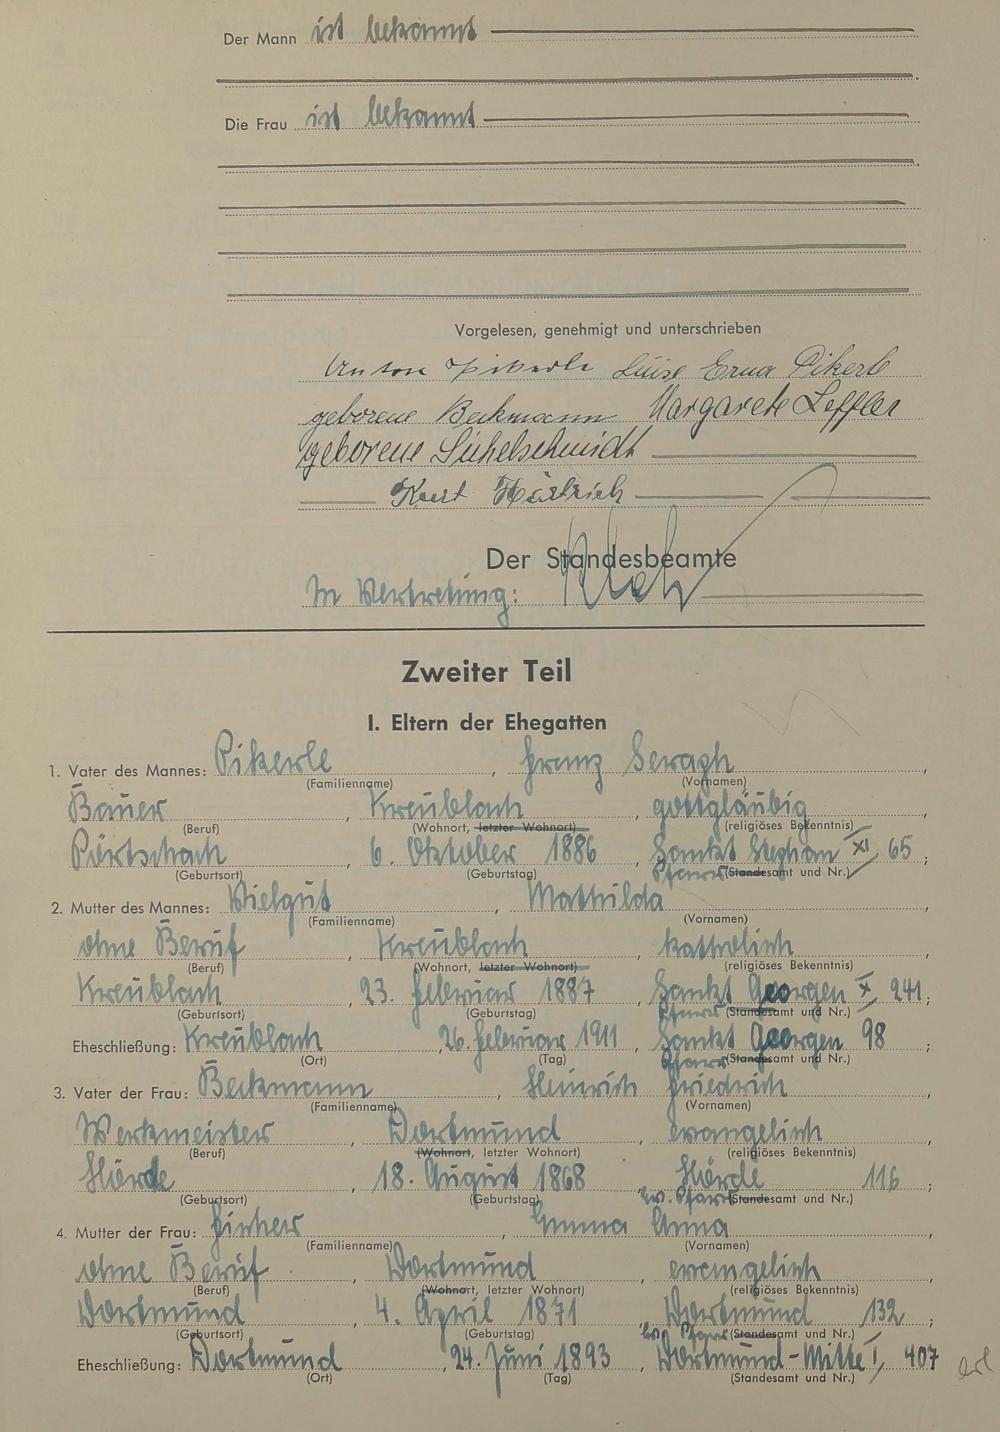 Der Mann ist bekannt
Die Frau ist bekannt
Vorgelesen, genehmigt und unterschrieben
Anton Pikerle Luise Erna Pikerle
geborene Beckmann Margarete Leffler
geborene Sichelschmidt
Kurt
Der Standesbeamte
In Vertretung:
Zweiter Teil
I. Eltern der Ehegatten
1. Vater des Mannes: Pikerle, Franz Seraph,
(Familienname) (Vornamen)
Bauer, Kreublach, gottgläubig,
(Beruf) (Wohnort, letzter Wohnort) (religiöses Bekenntnis)
Pörtschach, 6. Oktober 1886, Sankt Stephan XI, 65;
(Geburtsort) (Geburtstag) Pfarr (Standesamt und Nr.)
2. Mutter des Mannes: Vielgut, Mathilda
(Familienname) (Vornamen)
ohne Beruf, Kreublach, katholisch,
(Beruf) (Wohnort, letzter Wohnort) (religiöses Bekenntnis)
Kreublach, 23. Februar 1887, Sankt Georgen X, 241;
(Geburtsort) (Geburtstag) Pfarr (Standesamt und Nr.)
Eheschließung: Kreublach, 26. Februar 1911, Sankt Georgen 98;
(Ort) (Tag) Pfarr (Standesamt und Nr.)
3. Vater der Frau: Beckmann, Heinrich Friedrich
(Familienname) (Vornamen)
Werkmeister, Dortmund, evangelisch,
(Beruf) (Wohnort, letzter Wohnort) (religiöses Bekenntnis)
Hörde, 18. August 1868, Hörde 116;
(Geburtsort) (Geburtstag) ev. Pfarr (Standesamt und Nr.)
4. Mutter der Frau: Fischer, Emma Anna,
(Familienname) (Vornamen)
ohne Beruf, Dortmund, evangelisch,
(Beruf) (Wohnort, letzter Wohnort) (religiöses Bekenntnis)
Dortmund, 4. April 1871, Dortmund 132;
(Geburtsort) (Geburtstag) ev. Pfarr (Standesamt und Nr.)
Eheschließung: Dortmund, 24. Juni 1893, Dortmund-Mitte I, 407
(Ort) (Tag) (Standesamt und Nr.)